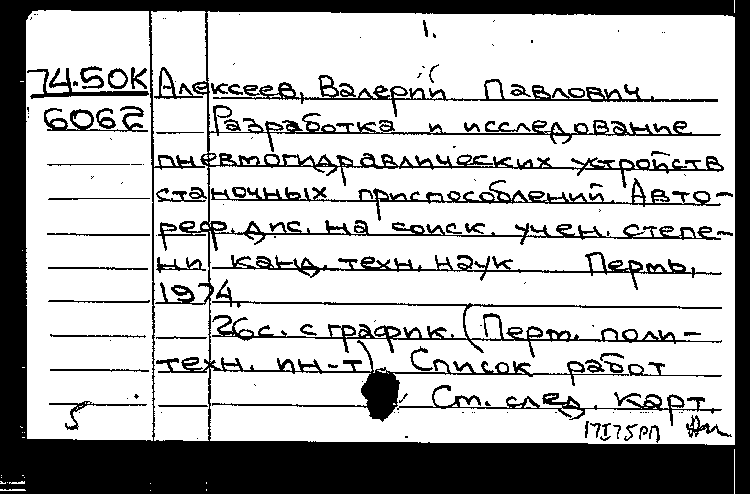 1.
74.50К Алексеев, Валерий Павлович.
6062 Разработка и исследование
пневмогидравлических устройств
станочных приспособлений. Авто-
реф. дис. на соиск. учен. степе-
ни канд. техн. наук. Пермь,
1974.
26с. с график. (Перм. поли-
техн. ин-т) Список работ
Ст. след. карт.
5